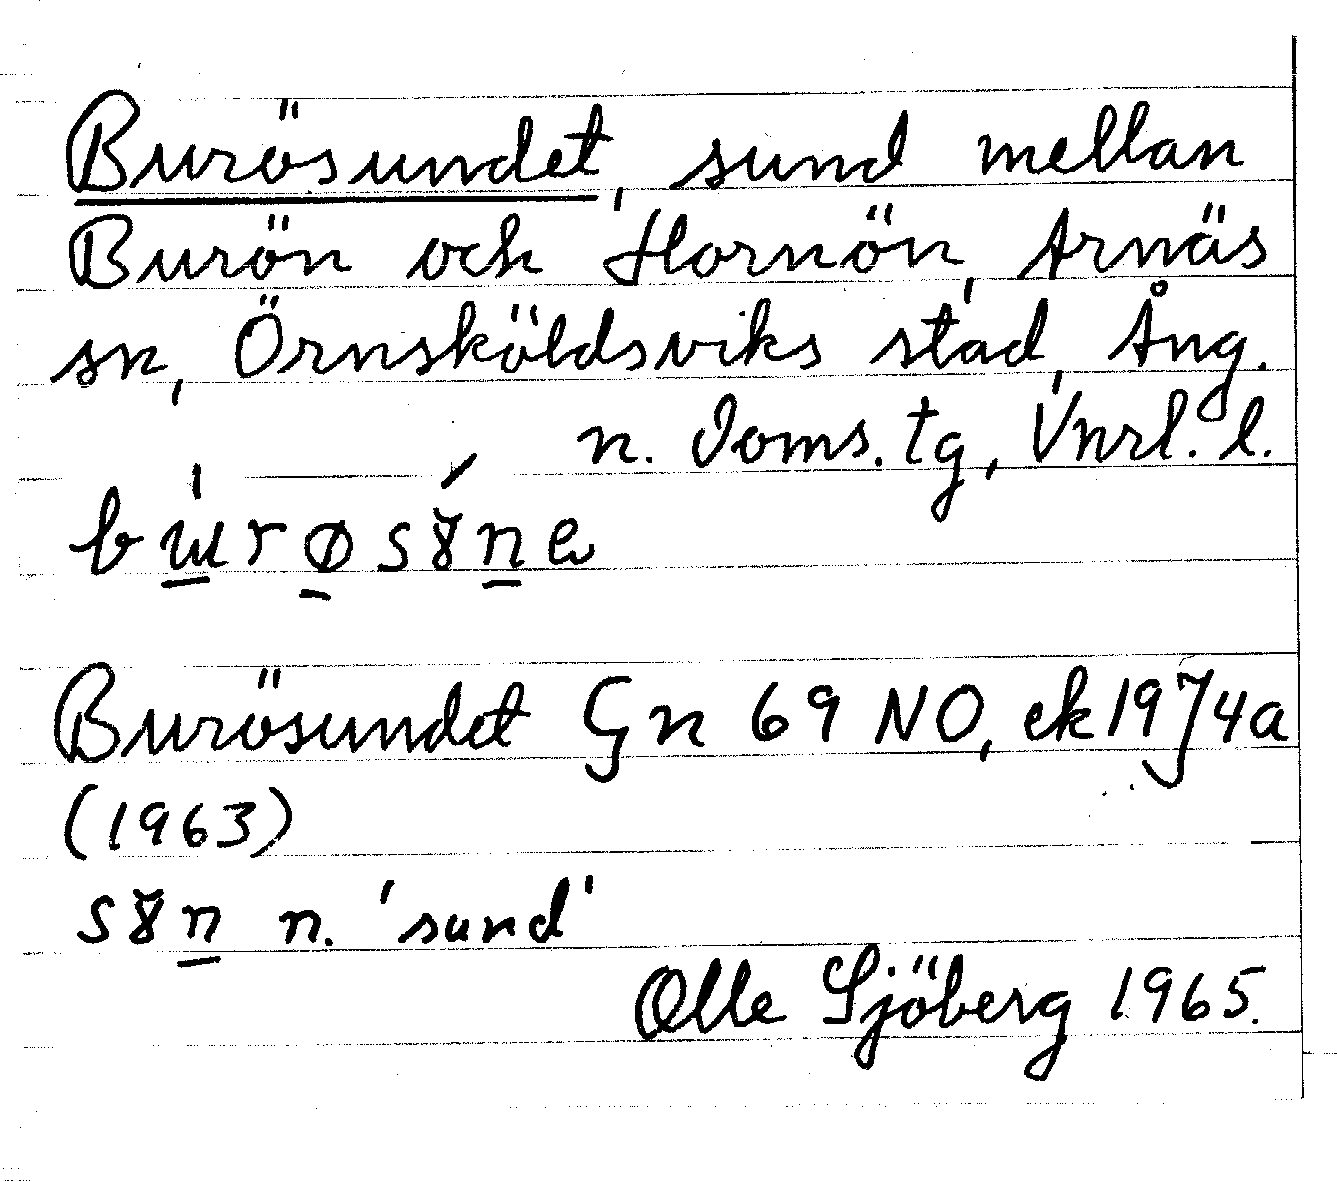 Burösundet, sund mellan
Burön och Hornön, Arnäs
sn, Örnsköldsviks stad, Ång.
n. Doms. tg, Vnrl. l.
Burösundet Gn 69 NO, ek 1974a
(1963)
n. 'sund'
Olle Sjöberg 1965.